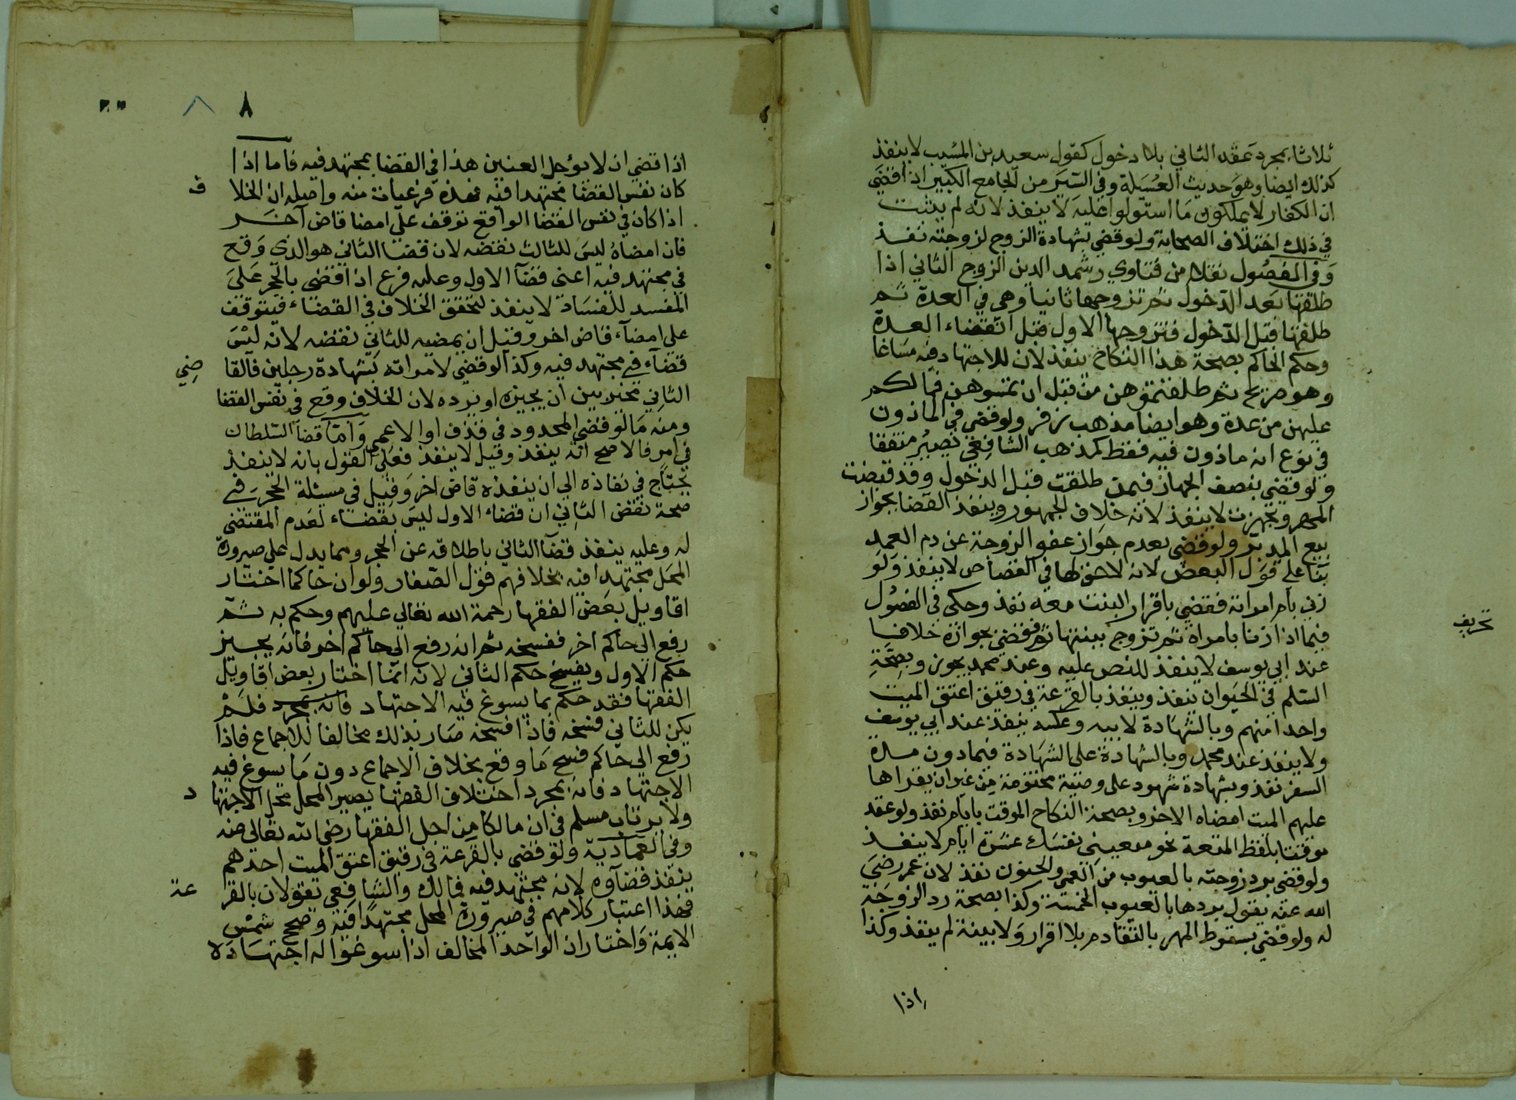 ثلاثا بمجرد عقد الثاني بلا دخول كقول سعيد بن المسيب لا ينفذ
كذلك ايضا وهو حديث العسيلة وفي السير من الجامع الكبير اذا قضى
ان الكفار لا يملكون ما استولوا عليه لا ينفذ لانه لم يثبت
في ذلك اختلاف الصحابة ولو قضي بشهادة الزوج لزوجته نفذ
وفي المفصول نقلا من فتاوي رشيد الدين الزوج الثاني اذا
طلقها بعد الدخول ثم تزوجها ثانيا وهي في العدة ثم
طلقها قبل الدخول فتزوجها الاول قبل انقضاء العدة
وحكم الحاكم بصحة هذا النكاح ينفذ لان للاجتهاد فيه مساغا
وهو صريح ثم طلقتموهن من قبل ان تمسوهن فما لكم
عليهن من عدة وهو ايضا مذهب زفر ولو قضي في الماذون
في نوع انه ماذون فيه فقط كمذهب الشافعي يصير متفقا
ولو قضي بنصف الجهاز فيمن طلقت قبل الدخول وقد قبضت
المهر وتجهزت لا ينفذ لانه خلاف الجمهور وينفذ القضا بجواز
بيع المدبر ولو قضي بعدم جواز عفو الزوجة عن دم العمد
بنا على قول البعض لانه لا حق لها في القصاص لا ينفذ ولو
زني بام امراته فقضي باقرار البنت معه نفذ وحكى في الفصول
فيما اذا زنا بامراة ثم تزوج ببنتها ثم قضي بجوازه خلافا
عند ابي يوسف لا ينفذ للنص عليه وعند محمد يجوز وبصحة
السلم في الحيوان ينفذ وينفذ بالقرعة في رقيق اعتق الميت
واحدا منهم وبالشهادة لابيه وعكسه ينفذ عند ابي يوسف
ولا ينفذ عند محمد وبالشهادة على الشهادة فيما دون مدة
السفر نفذ وبشهادة شهود على وصية مختومة من غير ان يقراها
عليهم الميت امضاه الاخر وبصحة النكاح الموقت بايام نفذ ولو عقد
موقتا بلفظ المتعة نحو متعيني نفسك عشرة ايام لا ينفذ
ولو قضي برد زوجته بالعيوب من العمى والجنون نفذ لان عمر رضي
الله عنه يقول بردها بالعيوب الخمسة وكذا بصحة رد الزوجة
له ولو قضي بسقوط المهر بالتقادم بلا اقرار ولا بينة لم ينفذ وكذا
اذا
٨
٨
اذا قضي ان لا يؤجل العنين هذا في القضا بمجتهد فيه فاما اذا
كان نفس القضا مجتهدا فيه فهذه فرعيات منه واصله ان الخلا
ف
اذا كان في نفس القضا الواقع توقف على امضا قاض آخر
فان امضاه ليس للثالث نقضه لان قضا الثاني هو الذي وقع
في مجتهد فيه اعني قضآ الاول وعليه فرع اذا قضى بالحجر على
المفسد للفساد لا ينفذ لتحقق الخلاف في القضاء فيتوقف
على امضآء قاض اخر وقبل ان يمضيه للثاني نقضه لانه ليس
قضآء في مجتهد فيه وكذا لو قضي لامراته بشهادة رجلين فالقا
ضي
الثاني مخير بين ان يجيزه او يرده لان الخلاف وقع في نفس القضا
ومنه ما لو قضي المحدود في قذف او الاعمى واما قضآ السلطان
في امر فالاصح انه ينفذ وقيل لا ينفذ فعلى القول بانه لا ينفذ
يحتاج في نفاذه الى ان ينفذه قاض اخر وقيل في مسئلة الحجر في
صحة نقض الثاني ان قضاء الاول ليس بقضاء لعدم المقتضي
له وعليه ينفذ قضآ الثاني باطلاقه عن الحجر ومما يدل على صيرورة
المحل مجتهدا فيه بخلافهم قول الصفار ولو ان حاكما اختار
اقاويل بعض الفقها رحمة الله تعالى عليهم وحكم به ثم
رفع الى حاكم اخر ففسخه ثم انه رفع الى حاكم اخر فانه يجيز
حكم الاول ويفسخ حكم الثاني لانه انما اختار بعض اقاويل
الفقها فقد حكم بما يسوغ فيه الاجتهاد فانه بمجرد فلم
يكن للثاني فسخه فاذا فسخه صار بذلك مخالفا للاجماع فاذا
رفع الى حاكم فسخ ما وقع بخلاف الاجماع دون ما يسوغ فيه
الاجتهاد فانه بمجرد اختلاف الفقها يصير المحل محل الاجتها
د
ولا يرتاب مسلم في ان مالكا من اجل الفقها رضي الله تعالى عنه
وفي العمادية ولو قضى بالقرعة في رقيق اعتق الميت احدهم
ينفذ قضآوه لانه مجتهد فيه فمالك والشافعي تقولان بالقر
عة
فهذا اعتبار كلامهم في صيرورة المحل مجتهدا فيه وصحح شمس
الايمة واختار ان الواحد المخالف اذا سوغوا له اجتهاده لا